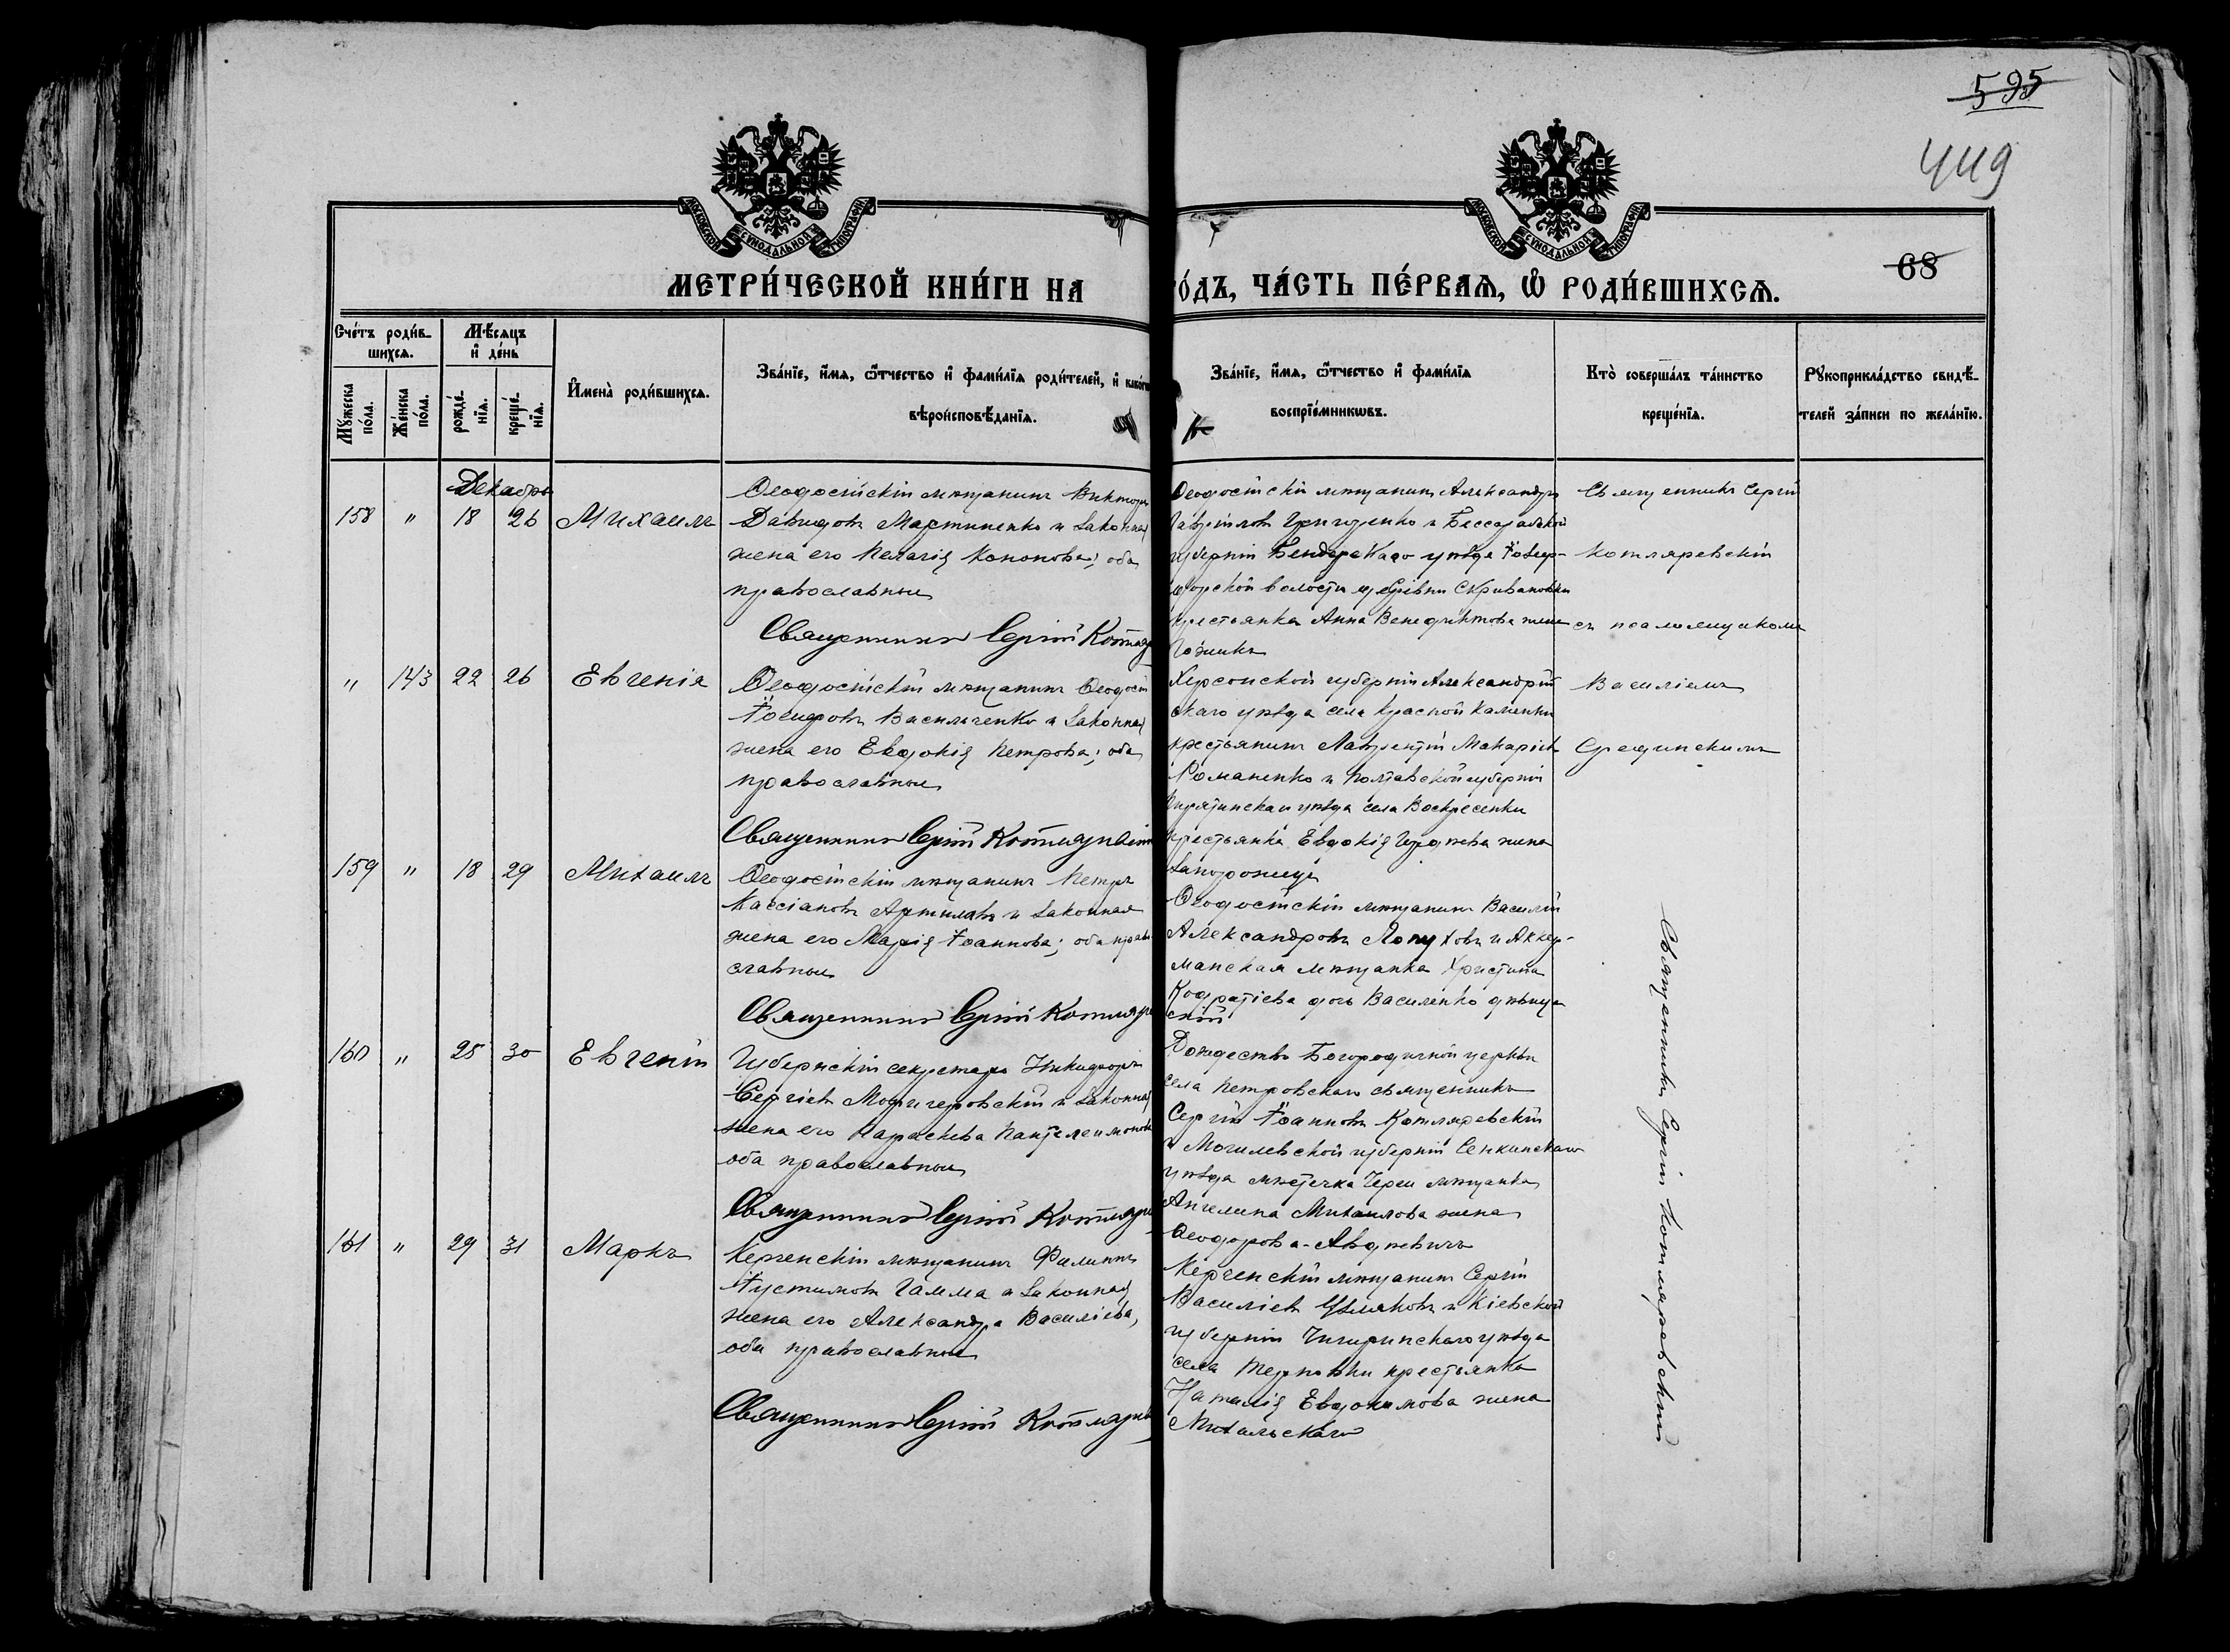 595
449
68
МОСКОВСКОЙ СУНОДАЛЬНОЙ ТИПОГРАФІИ
МОСКОВСКОЙ СУНОДАЛЬНОЙ ТИПОГРАФІИ
МЕТРИ́ЧЕСКОЙ КНИ́ГИ НА
ГО́ДЪ, ЧА́СТЬ ПЕ́РВАѦ, Ѡ РОДИ́ВШИХСѦ.
Сче́тъ роди́в-
шихсѧ.
Мѣ́сѧцъ
и҆ де́нь
Мꙋ́жеска по́ла.
Же́нска по́ла.
рожде́-нїѧ.
креще́-нїѧ.
И҆мена̀ роди́вшихсѧ.
Зва́нїе, и҆́мѧ, ѻ҆́тчество и҆ фами́лїѧ роди́телей, и҆
вѣроисповѣ́данїѧ.
Зва́нїе, и҆́мѧ, ѻ҆́тчество и҆ фами́лїѧ
воспрїе́мникѡвъ.
Кто̀ соверша́лъ та́инство
креще́нїѧ.
Рꙋкоприкла́дство свидѣ́-
телей за́писи по жела́нїю.
Декабрь
158 " 18 26 Михаилъ
Ѳеодосійскій мѣщанинъ Викторъ
Давидовъ Мартиненко и законная
жена его Пелагія Кононова; оба
православные
Священникъ Сергій Котляр
Ѳеодосійскій мѣщанинъ Александръ
Гавріиловъ и Бессарабской
губерніи Бендерскаго уѣзда
волости деревни Скривановки
крестьянка Анна Венедиктова жена
Священникъ Сергій
Котляревскій
съ псаломщикомъ
Василіемъ
Срединскимъ
" 143 22 26 Евгенія
Ѳеодосійскій мѣщанинъ Ѳеодосій
Васильченко и законная
жена его Евдокія Петрова; оба
православные
Священникъ Сергій Котляревскій
Херсонской губерніи Александрій
скаго уѣзда села Красной Каменки
крестьянинъ Лаврентій Макаріевъ
Романенко и Полтавской губерніи
Пирятинскаго уѣзда села Воскресенки
крестьянка Евдокія жена
159 " 18 29 Михаилъ
Ѳеодосійскій мѣщанинъ Петръ
Кассіановъ и законная
жена его Марія Іоаннова; оба право
славные
Священникъ Сергій Котляре
Ѳеодосійскій мѣщанинъ Василій
Александровъ Лопуховъ и Аккер-
манская мѣщанка Христина
Кодратіева дочь Василенко дѣвица
160 " 25 30 Евгеній
Губернскій секретарь Никифоръ
Сергіевъ и законная
жена его Параскева Пантелеимонова
оба православные
Священникъ Сергій Котляре
Рождество Богородичной церкви
села Петровскаго священникъ
Сергій Іоанновъ Котляревскій
и Могилевской губерніи Сенкинскаго
уѣзда мѣстечка Череи мѣщанка
Ангелина Михаилова жена
Ѳеодорова-Авдѣевичъ
161 " 29 31 Маркъ
Керченскій мѣщанинъ Филиппъ
Іустиновъ Гамма и законная
жена его Александра Василіева,
оба православные
Священникъ Сергій Котляре
Керченскій мѣщанинъ Сергій
Василіевъ и Кіевской
губерніи Чигиринскаго уѣзда
села Терновки крестьянка
Наталія Евдокимова жена
Михальскаго
Священникъ Сергій Котляревскій